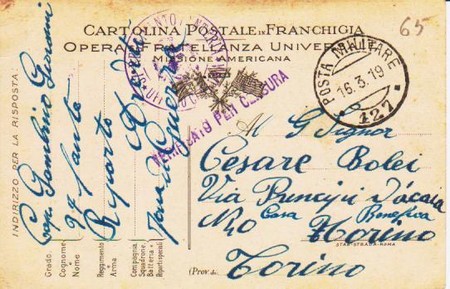 65
CARTOLINA POSTALE IN FRANCHIGIA
OPERA DI FRATELLANZA UNIVERSALE
MISSIONE AMERICANA
POSTA MILITARE
16.3.19
127
VERIFICATO PER CENSURA
INDIRIZZO PER LA RISPOSTA:
27 Fante
Reparto
Zona di Guerra
Grado
Cognome e Nome
Reggimento o Arma
Compagnia Squadrone Batteria o Riparti speciali
Al G Signor
Cesare Bolei
Via Principi d'Acaia
No 40 Casa Benefica
Torino
STAB. STRADA-ROMA
(Prov. di
Torino